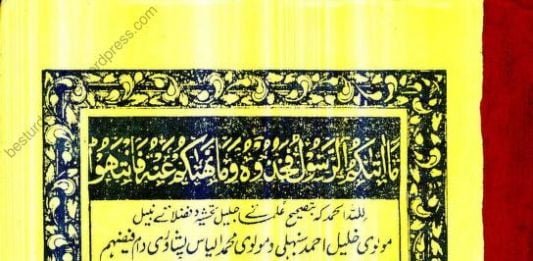 besturd rdpress.com
مَا اٰتٰىكُمُ الرَّسُوْلُ فَخُذُوْهُ وَمَا نَهٰىكُمْ عَنْهُ فَانْتَهُوْا
للہ الحمد کہ بتصحیح علمائے جلیل تحشیۂ فضلائے نبیل
مولوی خلیل احمد سنبہلی و مولوی محمد الیاس پشاوی دام فیضہم